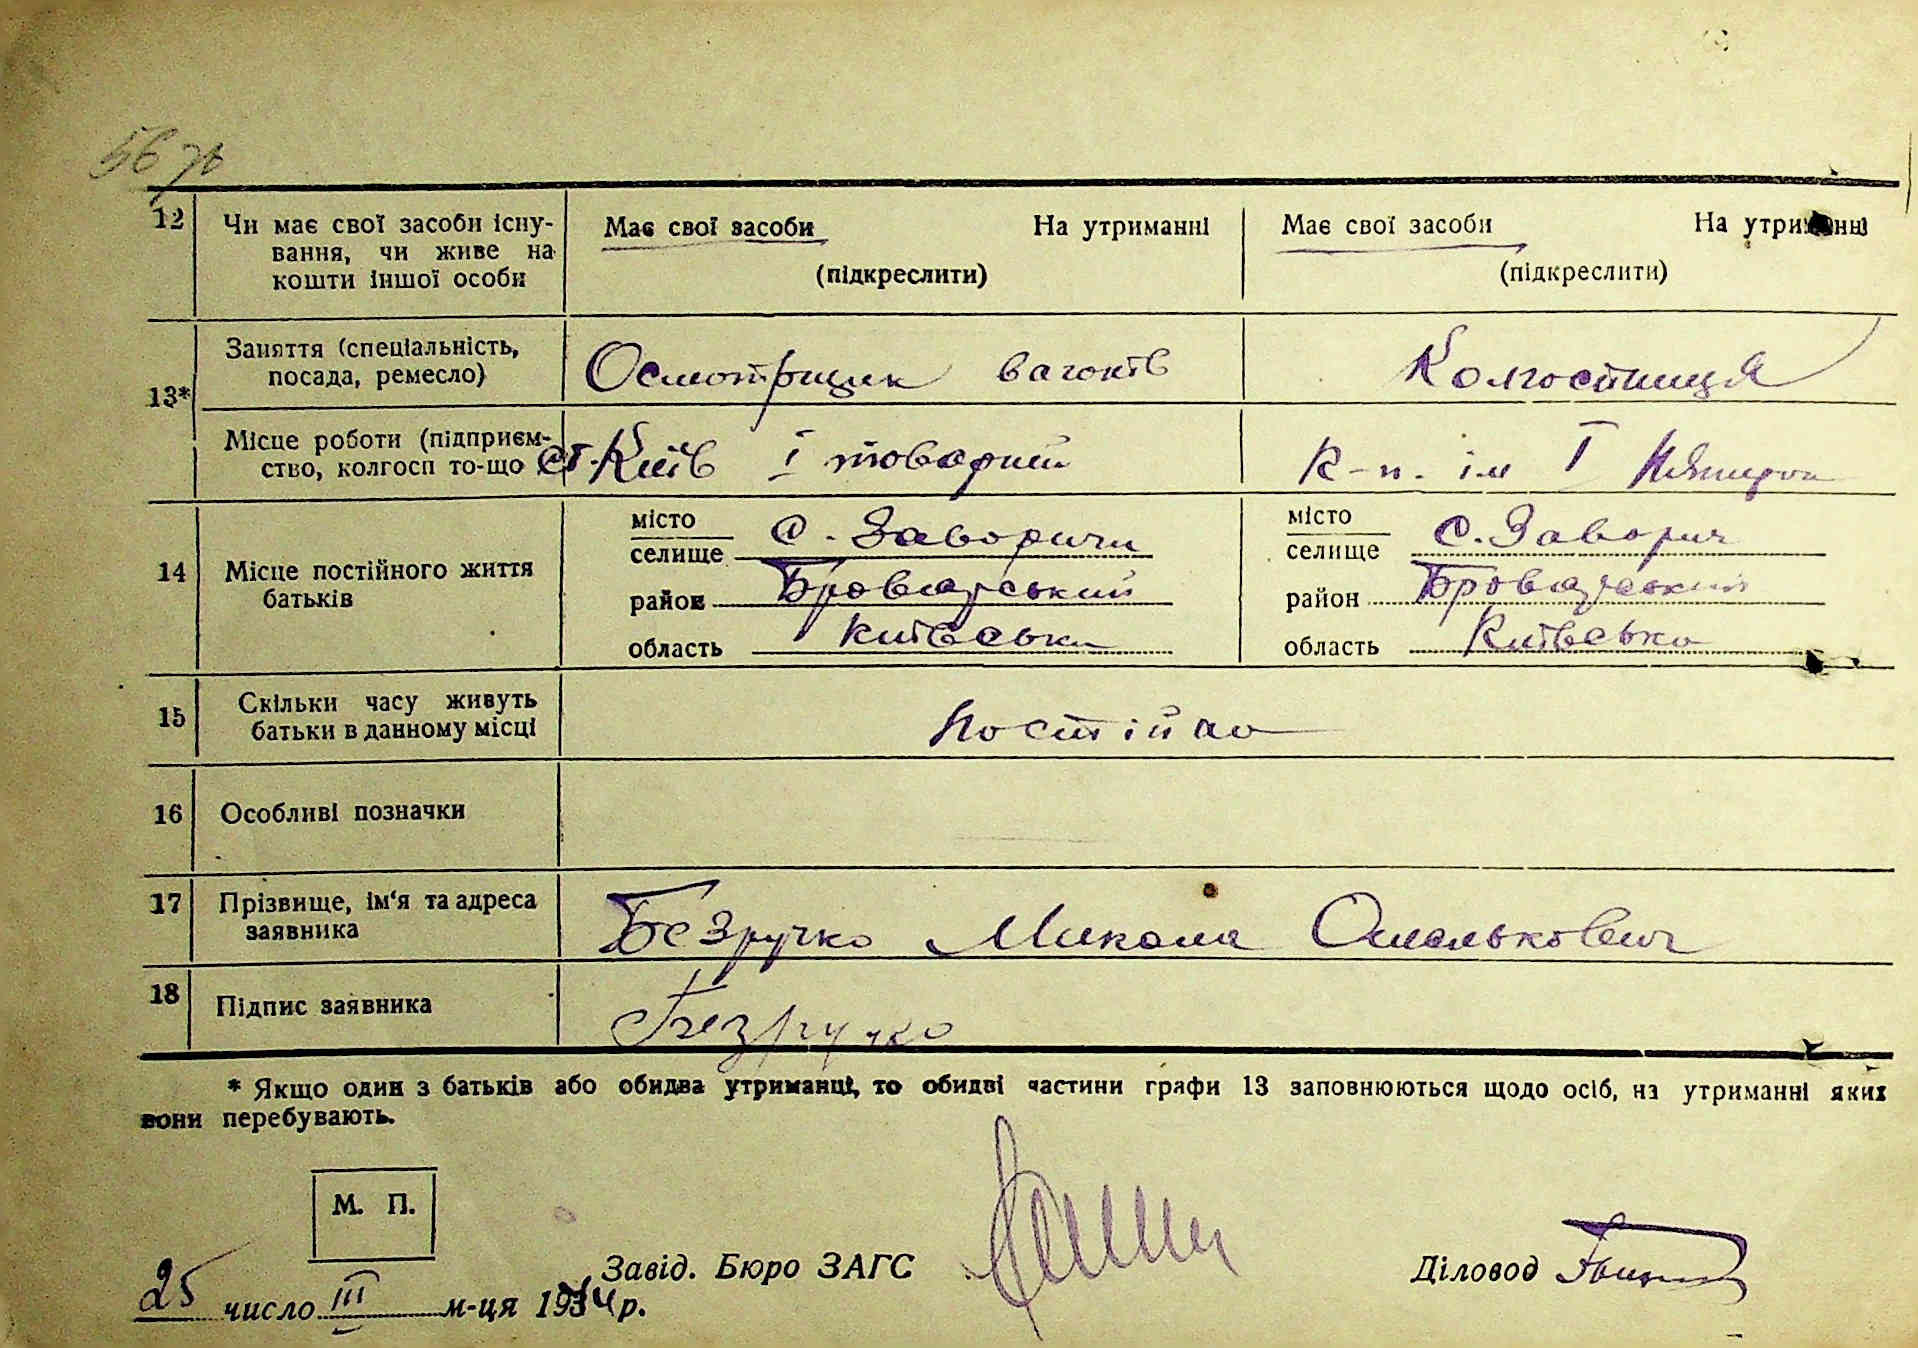 12 Чи має свої засоби існу-
вання, чи живе на
кошти іншої особи
Має свої засоби На утриманні
(підкреслити)
Має свої засоби На утриманні
(підкреслити)
13* Заняття (спеціальність,
посада, ремесло)
Осмотрщик вагонів
Колгоспниця
Місце роботи (підприєм-
ство, колгосп то-що
ст. Київ І товарний
к-п. ім І
14 Місце постійного життя
батьків
місто
селище с. Заворичи
район Броварський
область Київська
місто
селище с. Заворич
район Броварський
область Київсько
15 Скільки часу живуть
батьки в данному місці
Постійно
16 Особливі позначки
17 Прізвище, ім'я та адреса
заявника
Безручко Микола Омелькович
18 Підпис заявника
Безручко
* Якщо один з батьків або обидва утриманці, то обидві частини графи 13 заповнюються щодо осіб, на утриманні яких
вони перебувають.
М. П.
Завід. Бюро ЗАГС
Діловод
25 число III м-ця 1944 р.